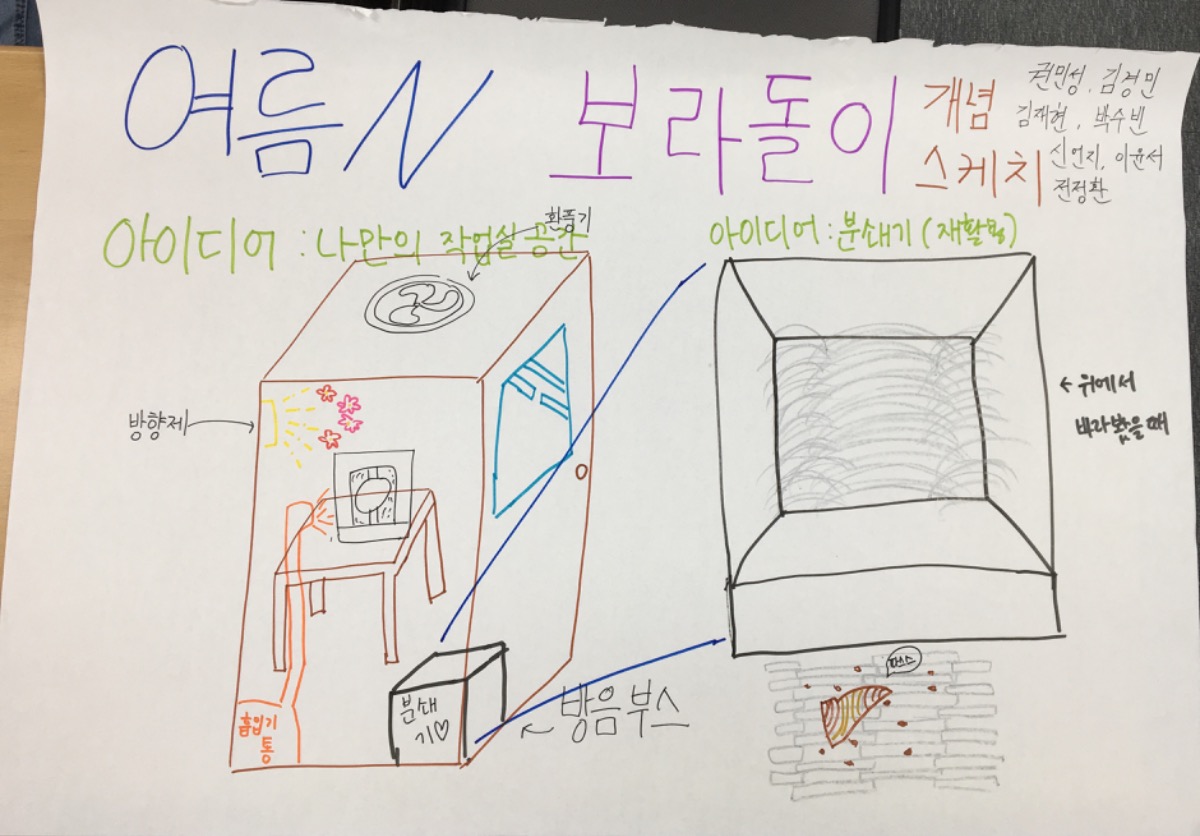 여름N 보라돌이 개념 스케치
권민성, 김경민
김재현, 박수빈
신언지, 이윤서
전정환
아이디어 : 나만의 작업실 공간
환풍기
방향제
흡입기
통
분쇄
기♡
← 방음부스
아이디어 : 분쇄기 (재활용)
← 위에서
바라봤을 때